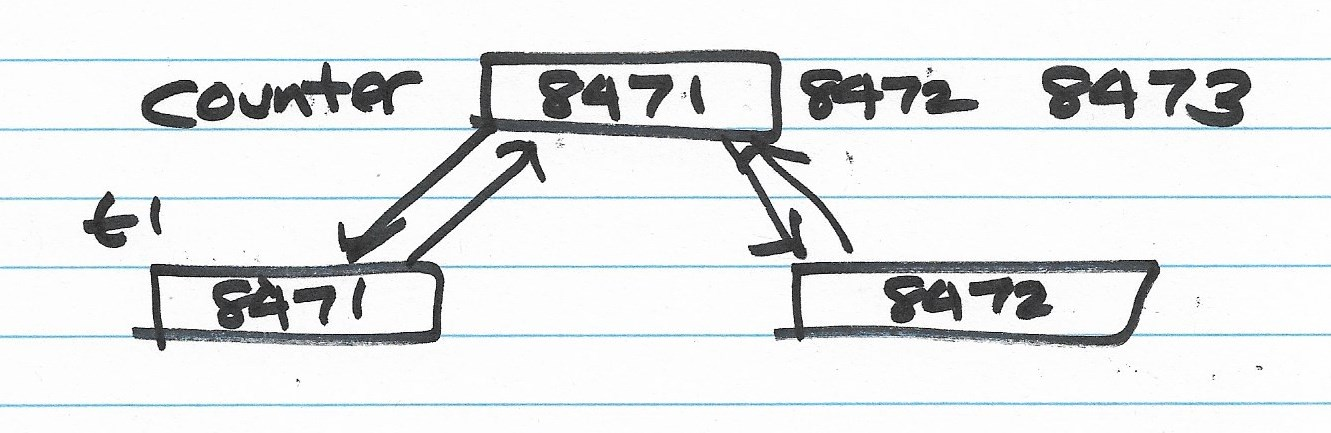 counter 8471 8472 8473
t1
8471 8472